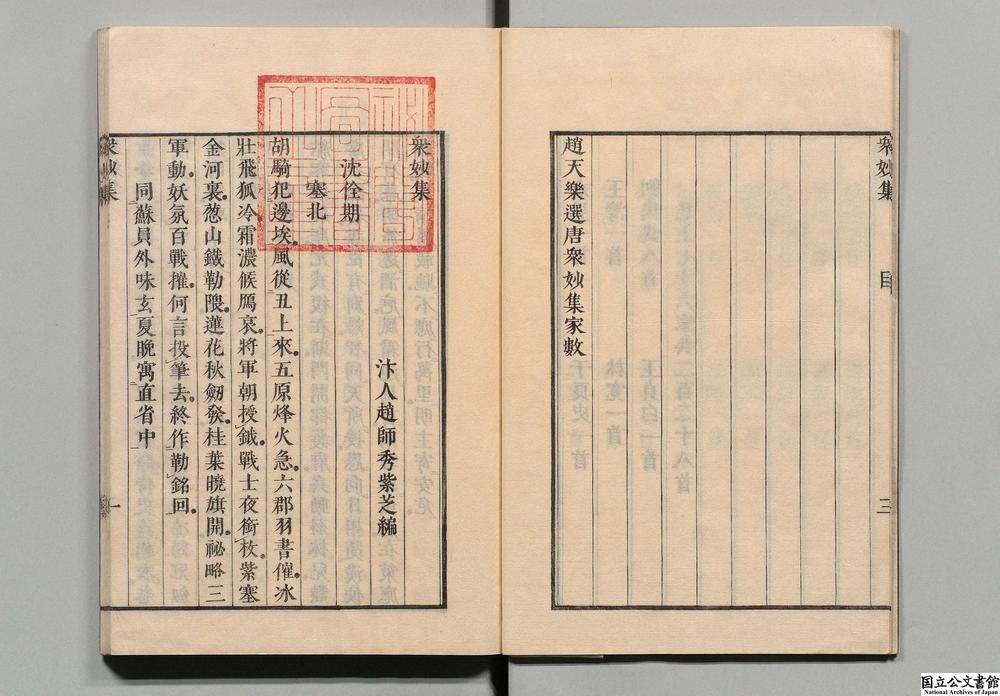 衆妙集
目
三
趙天樂選唐衆妙集家數
衆妙集
汴人趙師秀紫芝編
沈佺期
塞北
胡騎犯邊埃風從丑上來五原烽火急六郡羽書催冰
壯飛狐冷霜濃候鴈哀將軍朝授鉞戰士夜銜枚紫塞
金河裏葱山鐵勒隈蓮花秋劒發桂葉曉旗開祕略三
軍動妖氛百戰摧何言投筆去終作勒銘回
同蘇員外味玄夏晩寓直省中
衆妙集
一
国立公文書館
National Archives of Japan